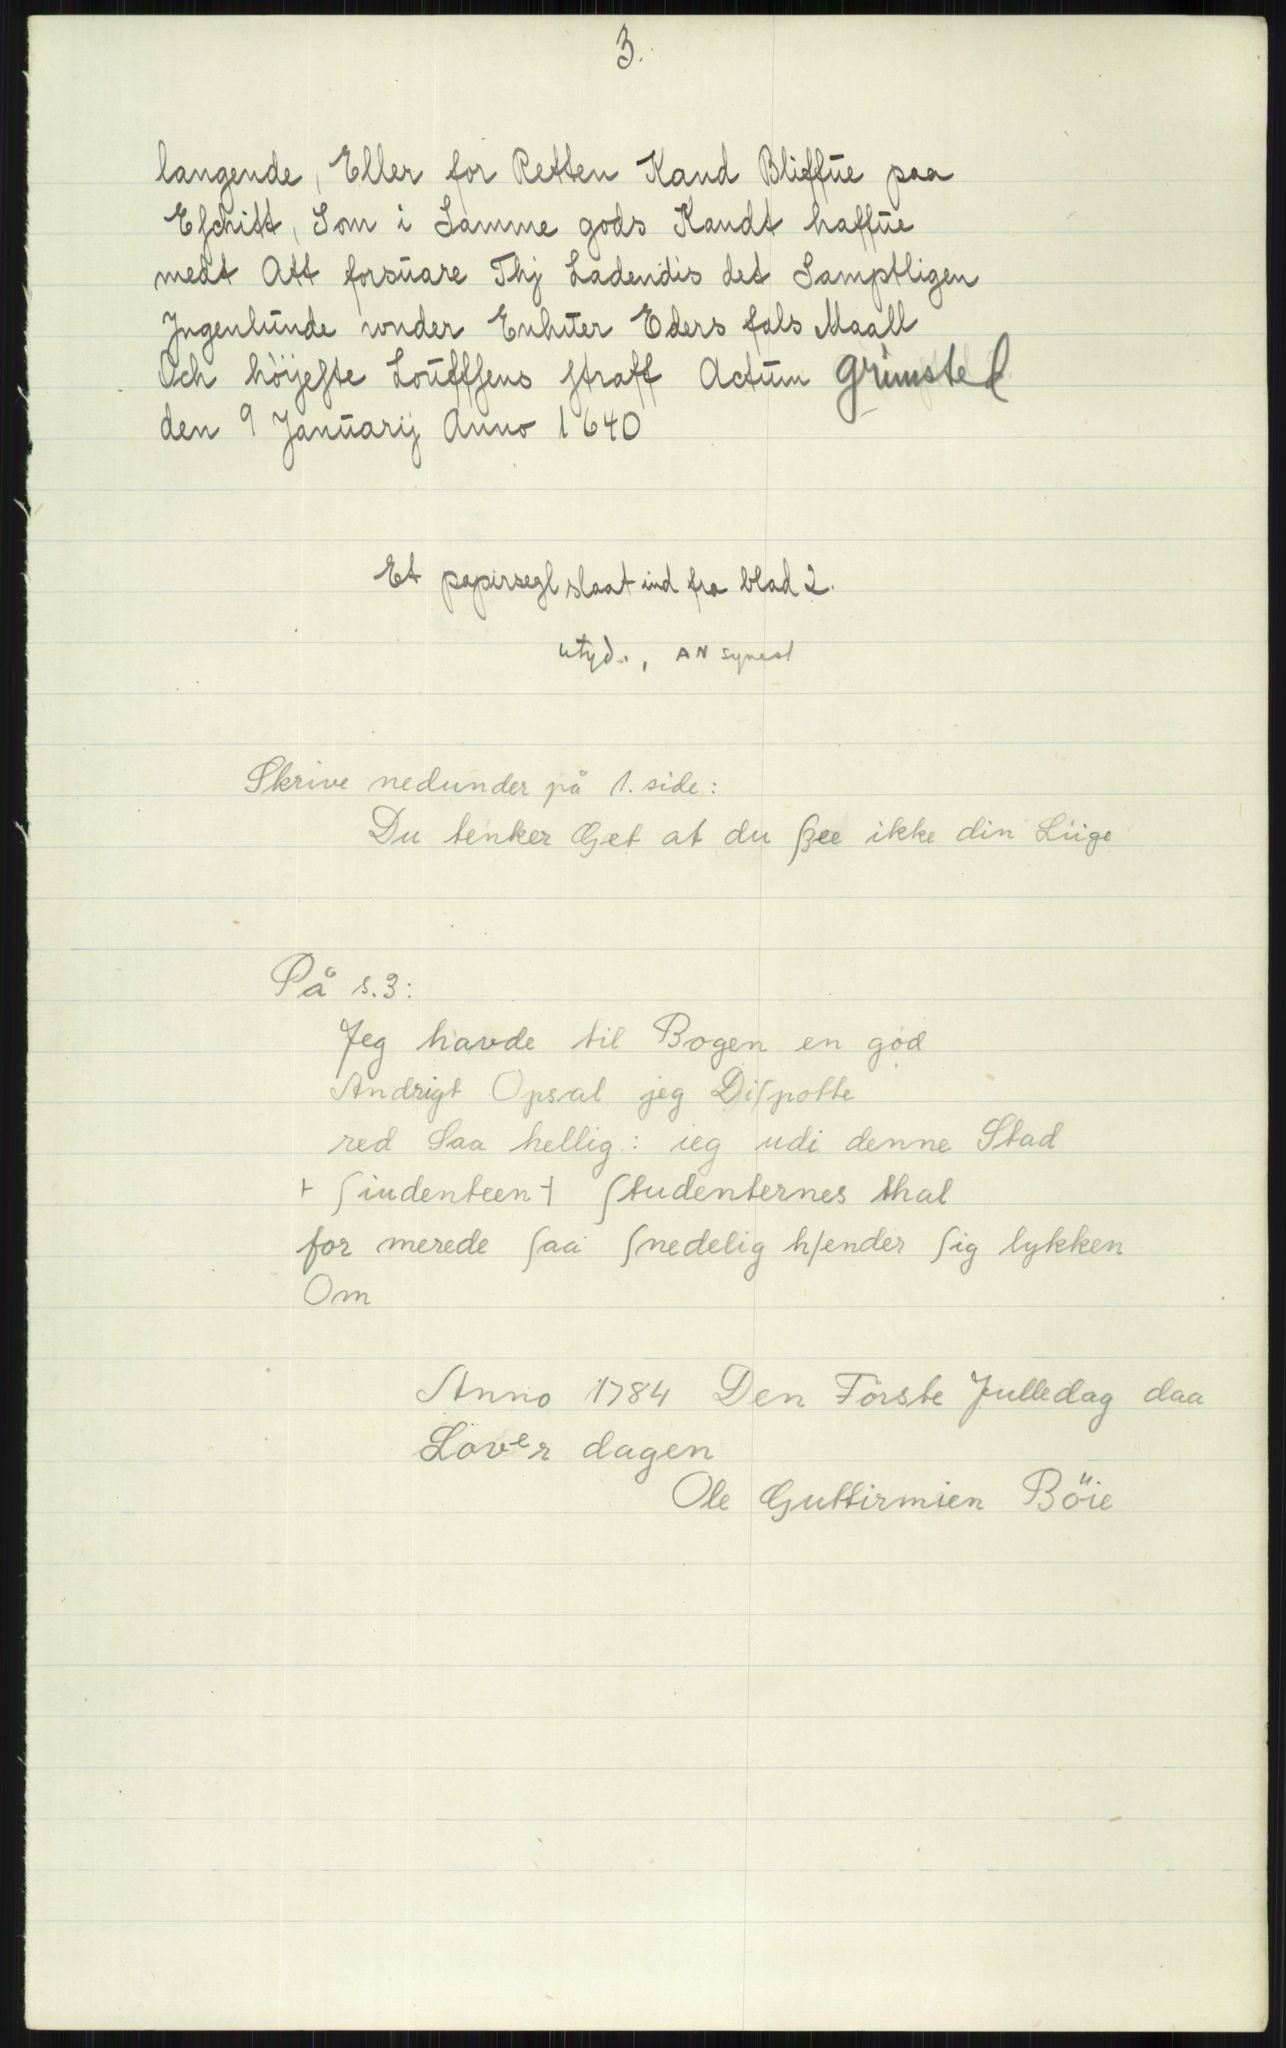 3.
langende, Eller for Retten Kand Bliffue paa
Eſchitt, Som i Samme gods Kandt haffue
medt Att forsuare Thj Ladendis det Samptligen
Jngenlunde wnder Enhuer Eders fals Maall
Och höijeſte Louffſens ſtraff Actum Grimsted
den 9 Januarij Anno 1640
Et papirsegl slaat ind fra blad 2.
utyd., AN synest
Skrive nedunder på 1. side:
Du tenker Get at du ſee ikke din Liige
På s.3:
Jeg havde til Bogen en god
Andrigt Opsal jeg Diſpotte
red Saa hellig: ieg udi denne Stad
+ ſiudenteen + ſtudenternes thal
for merede ſaa ſnedelig hſender ſig lykken
Om
Anno 1784 Den Förste Julledag daa
Löver dagen
Ole Guttirmien Böie